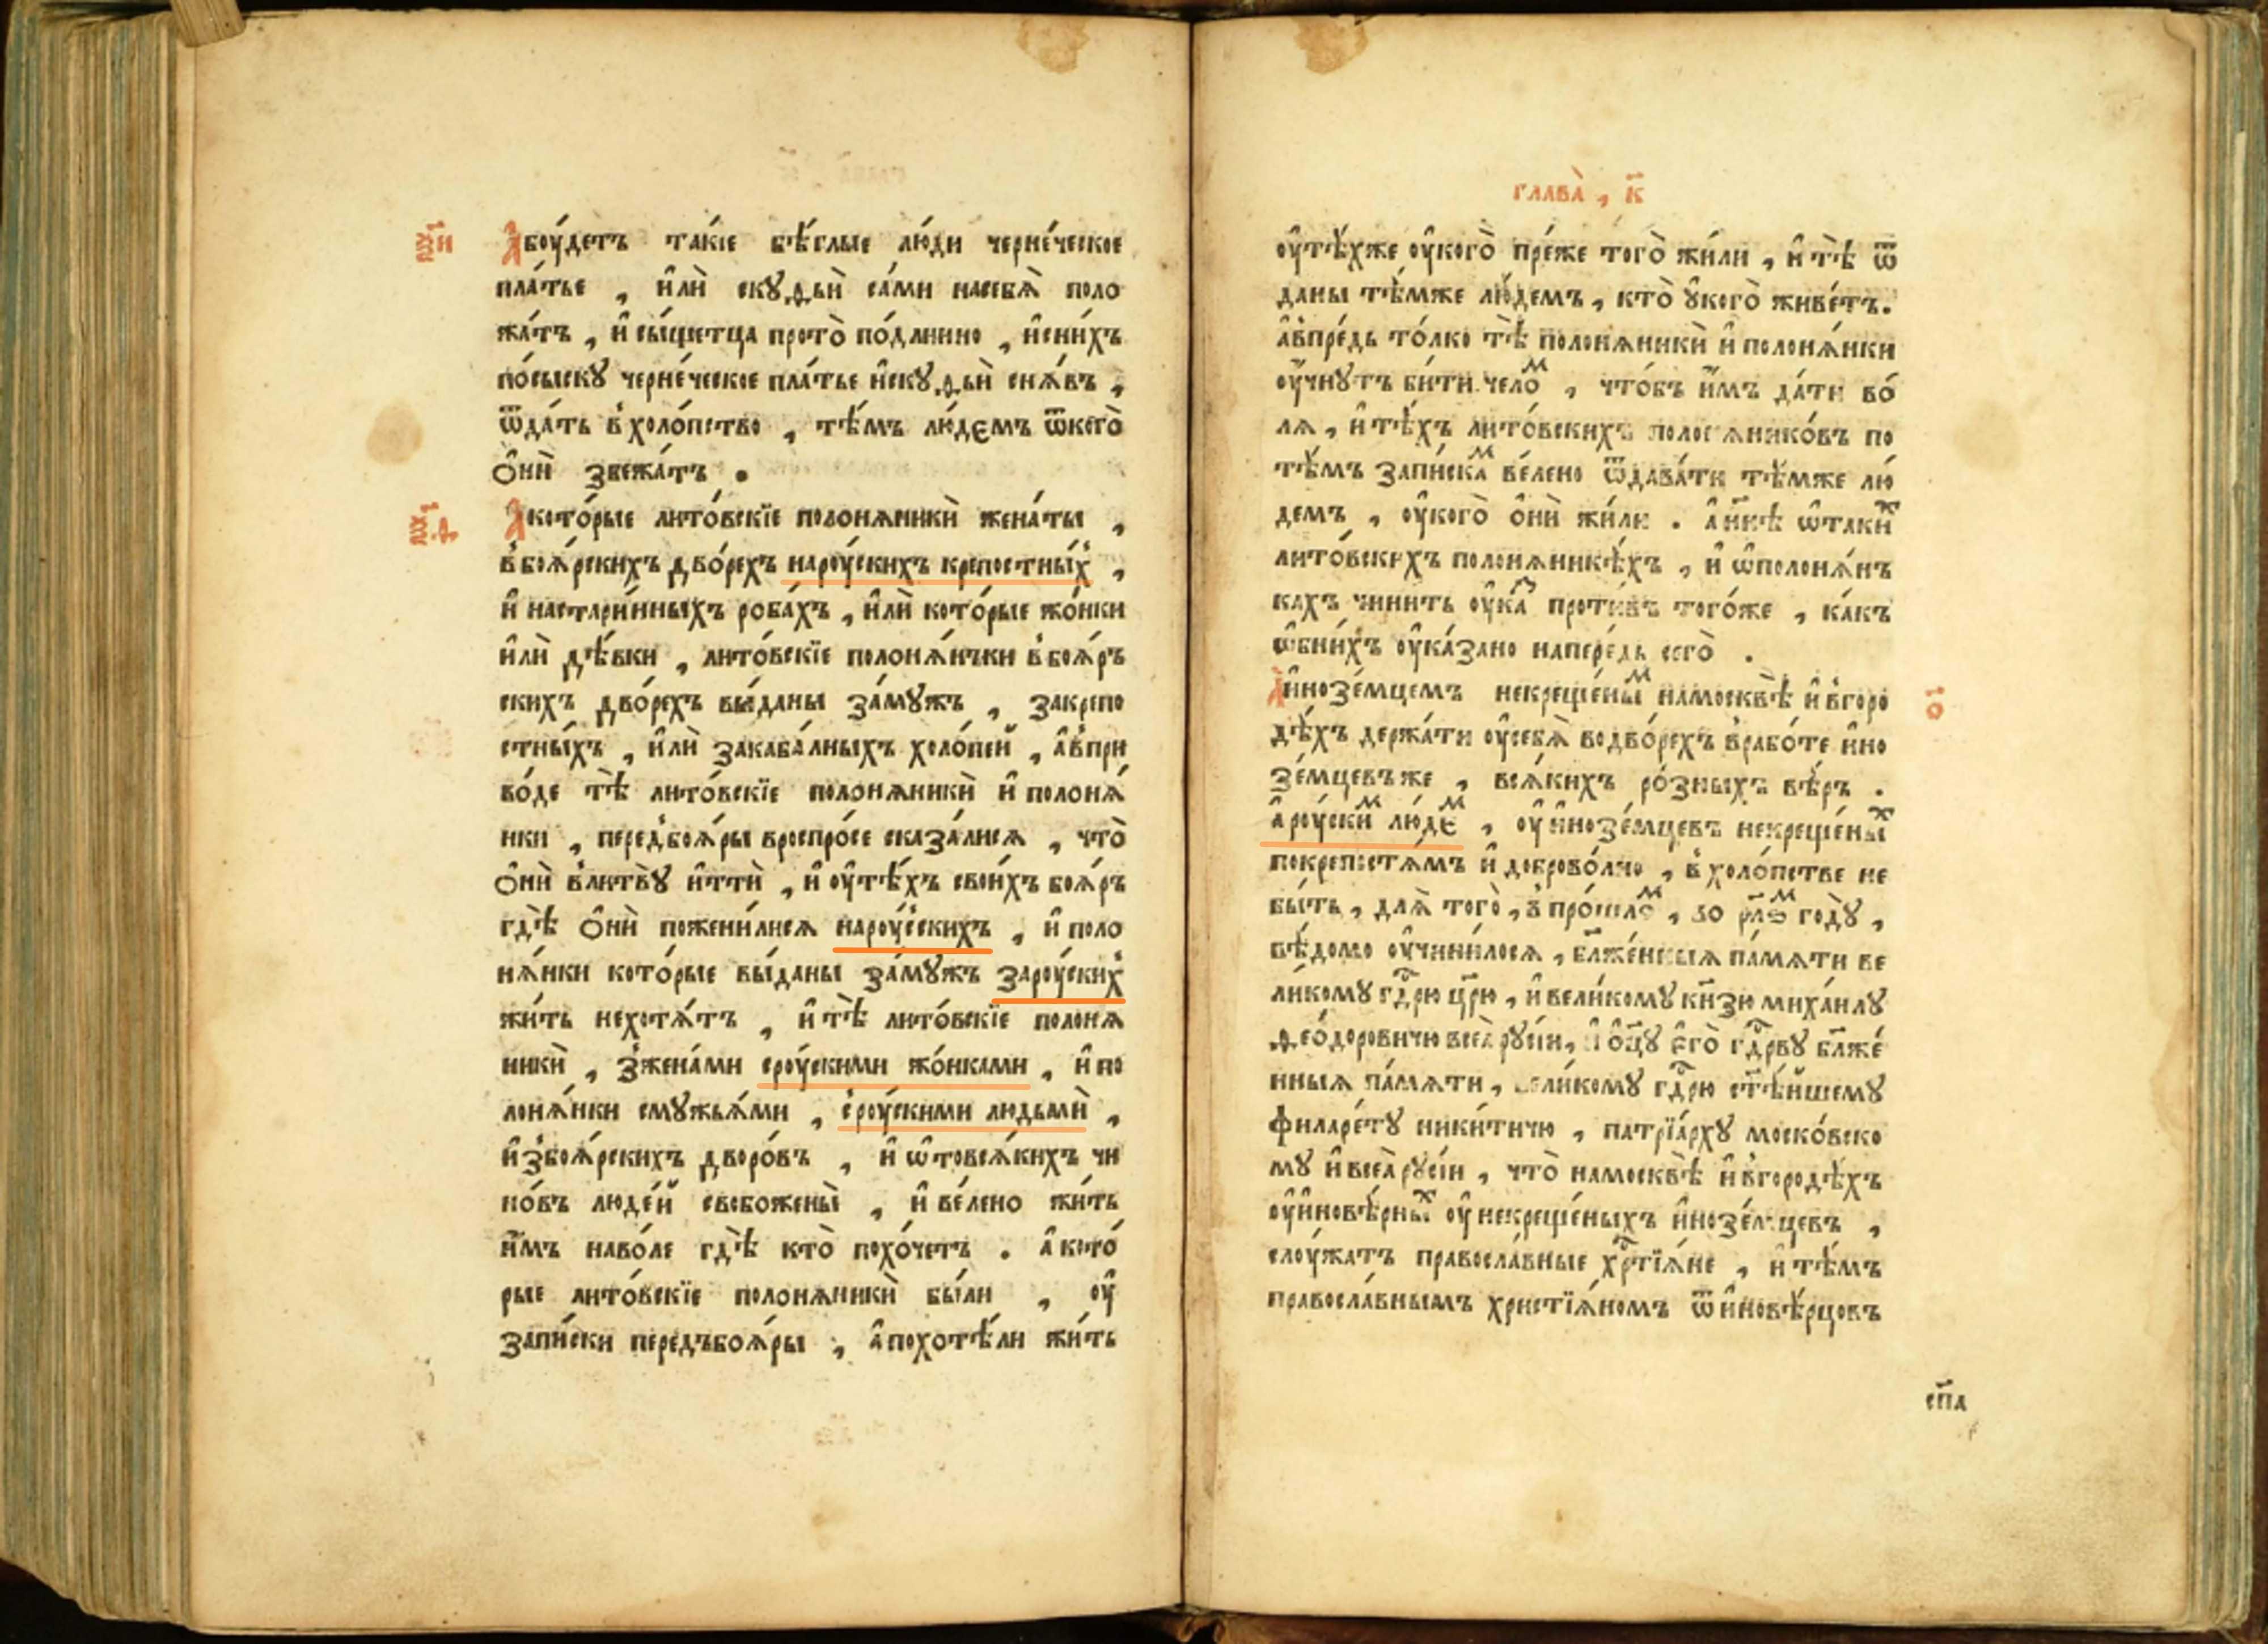 ѯ҃и
А҆бꙋ́детъ такі́е бѣ́глые лю́ди черне́ческое
пла́тье , и҆лѝ скꙋѳьѝ са́ми насебѧ̀ поло
жа́тъ , и҆ сы́щетца протѡ̀ по́длинно , и҆сни́хъ
посы́скꙋ черне́ческое пла́тье и҆скꙋѳьѝ снѧ́въ ,
ѿда́ть в хѡло́пство , тѣ́мъ лю́демъ ѿкогѡ̀
ѻ҆нѝ збежа́тъ .
ѯ҃ѳ
А҆кото́рые лито́вскїе полонѧникѝ жена́ты ,
в боѧ́рскихъ дво́рехъ нарꙋ́скихъ крепостны́х ,
и҆ настари́нныхъ роба́хъ , и҆лѝ кото́рые жо́нки
и҆лѝ дѣ́вки , лито́вскїе полонѧ́нъки в боѧ́ръ
скихъ дво́рехъ вы́даны за́мꙋжъ , закрепо
стны́хъ , и҆лѝ закаба́лныхъ холо́пей , а҆впри
во́де тѣ̀ лито́вскїе полонѧникѝ и҆ полонѧ́
нки , передбоѧ́ры вроспро́се сказа́лисѧ , что̀
ѻ҆нѝ в литвꙋ̀ и҆ттѝ , и҆ ᲂу҆тѣ́хъ свои́хъ боѧ́ръ
гдѣ̀ ѻ҆нѝ пожени́лисѧ нарꙋ́сскихъ , и҆ поло
нѧ́нки кото́рые вы́даны за́мꙋжъ зарꙋ́ских
жи́ть нехотѧ́тъ , и҆ тѣ̀ лито́вскїе полонѧ
никѝ , з жена́ми срꙋ́скими жо́нками , и҆ по
лонѧ́нки смꙋжьѧ́ми , с рꙋ́скими людьмѝ ,
и҆ з боѧ́рскихъ дворо́въ , и҆ ѡ҆товсѧ́кихъ чи
но́въ люде́й свобоженѝ , и҆ ве́лено жи́ть
и҆̀мъ наво́ле гдѣ̀ кто̀ похо́четъ . а҆ кото́
рые лито́вскїе полонѧникѝ бы́ли , ᲂу҆
запи́ски передъбоѧ́ры , а҆похотѣ́ли жи́ть
глава̀ , к҃
ᲂу҆тѣ́хже ᲂу҆когѡ̀ пре́же тогѡ̀ жи́ли , и҆ тѣ̀ ѿ
даны тѣ́мже лю́демъ , кто̀ ᲂу҆когѡ̀ живе́тъ .
а҆впре́дь то́лко тѣ̀ полонѧникѝ и҆ полонѧ́нки
ᲂу҆чнꙋ́тъ би́ти чело́м , что́бъ и҆̀мъ да́ти во́
лѧ , и҆ тѣ́хъ лито́вскихъ полонѧнико́въ по
тѣ́мъ запи́скам ве́лено ѿдава́ти тѣ́мже лю́
демъ , ᲂу҆когѡ̀ ѻ҆нѝ жи́ли . а҆ нн҃ѣ ѡ҆таких
лито́вскихъ полонѧникѣ́хъ , и҆ ѡ҆полонѧ́нъ
кахъ чини́ть ᲂу҆ка́з проти́въ того́же , ка́къ
ѡ҆бни́хъ ᲂу҆ка́зано напере́дь сегѡ̀ .
о҃
А҆и҆нозе́мцемъ некреще́ным намосквѣ̀ и҆ вгоро
дѣ́хъ держа́ти ᲂу҆себѧ̀ водво́рехъ врабо́те и҆но
зе́мцевъже , всѧ́кихъ ро́зныхъ вѣ́ръ .
а҆ рꙋ́ским лю́дем , ᲂу҆ и҆нозе́мцевъ некреще́ных
покрепостѧ́мъ и҆ доброво́лно , в холо́пстве не
бы́ть , длѧ̀ тогѡ̀ , в про́шлом , во рл҃ѕм годꙋ̀ ,
вѣ́домо ᲂу҆чини́лосѧ , бл҃же́нныѧ па́мѧти ве
ли́комꙋ гдⷭ҇рю цр҃ю , и҆ вели́комꙋ кн҃зю миха́илꙋ
ѳео́доровичю всеѧ̀ рꙋсі́и , и҆ ѻ҆ц҃ꙋ є҆гѡ̀ гдⷭ҇рвꙋ бл҃же́
нныѧ па́мѧти , вели́комꙋ гдⷭ҇рю ст҃ѣ́йшемꙋ
филаре́тꙋ ники́тичю , патрїа́рхꙋ моско́вско
мꙋ и҆ всеѧ̀ рꙋсі́и , что̀ намосквѣ̀ и҆ вгородѣ́хъ
ᲂу҆и҆новѣ́рных ᲂу҆ некреще́ныхъ и҆нозе́мцевъ ,
слꙋ́жатъ правосла́вные хрⷭ҇тїѧ́не , и҆ тѣ́мъ
правосла́внымъ христїѧ́номъ ѿ и҆новѣ́рцовъ
сп҃а